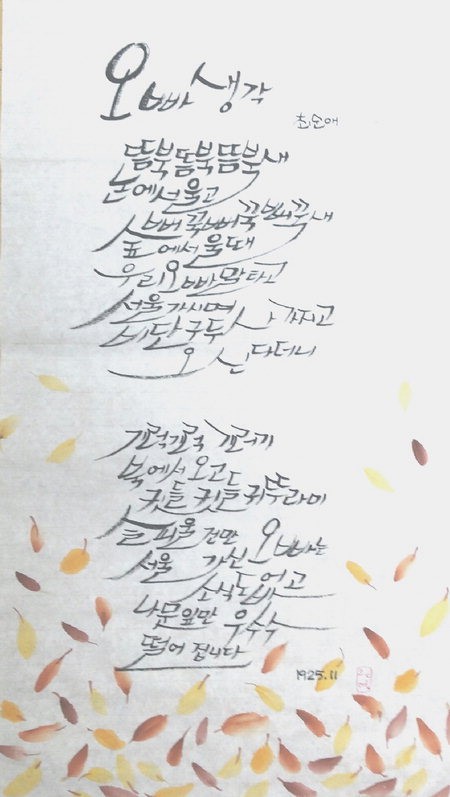 오빠 생각
최순애
뜸북뜸북뜸북새
논에서 울고
뻐꾹뻐꾹뻐꾹새
숲에서 울때
우리오빠말타고
서울가시며
비단구두 사가지고
오신다더니
기럭기럭 기러기
북에서 오고
귓들귓들귀뚜라미
슬피울건만
서울 가신 오빠는
소식도 없고
나뭇잎만 우수수
떨어 집니다
1925.11